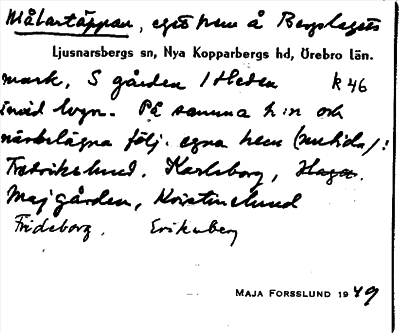 Målartäppan, eget hem å Bergslagets
Ljusnarsbergs sn, Nya Kopparbergs hd, Örebro län.
mark, S gården 1 Heden k 46
invid lvgn. På samma h:n och
närbelägna följ. egna hem (nutida):
Fredrikslund, Karlsborg, Haga.
Majgården, Kristinelund
Fridsborg, Eriksberg
MAJA FORSSLUND 1949